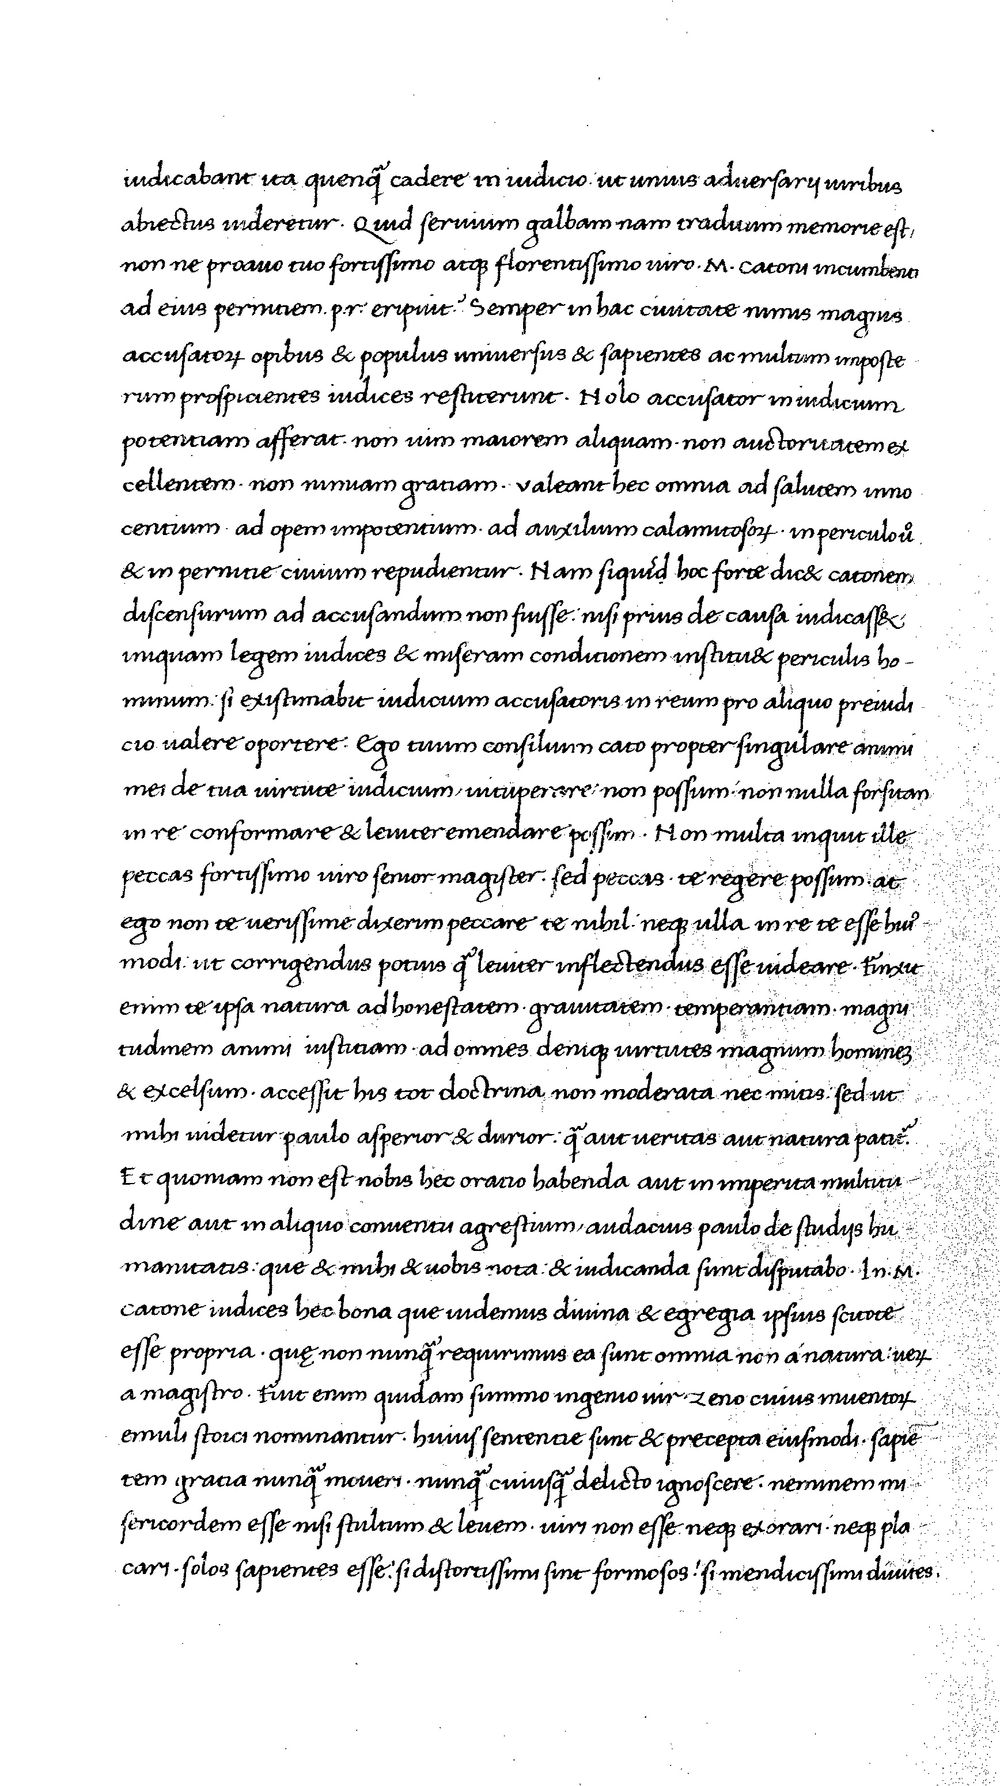 iudicabant ita quenq̃ cadere in iudicio· ut unius adversarij viribus
abiectus videretur· Quid servium galbam nam traditum memorie est,
non ne proavo tuo fortissimo atqꝫ florentissimo viro· M· Catoni incumbenti
ad eius pernitiem· p·r· eripuit? Semper in hac civitate nimis magnis
accusatoꝝ opibus & populus universus & sapientes ac multum imposte
rum prospicientes iudices restiterunt· Nolo accusator in iudicium
potentiam afferat· non vim maiorem aliquam· non auctoritatem ex
cellentem· non nimiam gratiam· valeant hec omnia ad salutem inno
centium· ad opem impotentium· ad auxilium calamitosoꝝ· in periculo ů
& in pernitie civium repudientur· Nam siquid hoc forte dic& catonem
discensurum ad accusandum non fuisse: nisi prius de causa iudicass&,
iniquam legem iudices & miseram conditionem institu& periculis ho-
minum: si existimabit iudicium accusatoris in reum pro aliquo preiudi
cio valere oportere· Ego tuum consilium cato propter singulare animi
mei de tua virtute iudicium, vituperare· non possum· non nulla forsitan
in re conformare & leviter emendare possim· Non multa inquit ille
peccas fortissimo viro senior magister· sed peccas· te regere possum· at
ego non te verissime dixerim peccare te nihil: neqꝫ ulla in re te esse huiꝰ
modi: ut corrigendus potius q̃ leviter inflectendus esse videare· Finxit
enim te ipsa natura ad honestatem· gravitatem· temperantiam· magni
tudinem animi iustitiam· ad omnes deniqꝫ virtutes magnum homineꝫ
& excelsum· accessit his tot doctrina non moderata nec mitis: sed ut
mihi videtur paulo asperior & durior: q̃ aut veritas aut natura patit̃·
Et quoniam non est nobis hec oratio habenda aut in imperita multitu
dine aut in aliquo conventu agrestium, audacius paulo de studijs hu
manitatis: que & mihi & vobis nota: & iudicanda sunt disputabo· In· M·
Catone iudices hec bona que videmus divina & egregia ipsius scitote
esse propria· quę non nunq̃ requirimus ea sunt omnia non a natura: veꝝ
a magistro· Fuit enim quidam summo ingenio vir· Zeno cuius inventoꝝ
emuli stoici nominantur· huius sententie sunt & precepta eiusmodi· sapiē
tem gratia nunq̃ moveri· nunq̃ cuiusq̃ delicto ignoscere· neminem mi
sericordem esse nisi stultum & levem· viri non esse neqꝫ exorari· neqꝫ pla
cari· solos sapientes esse: si distortissimi sint formosos: si mendicissimi divites·